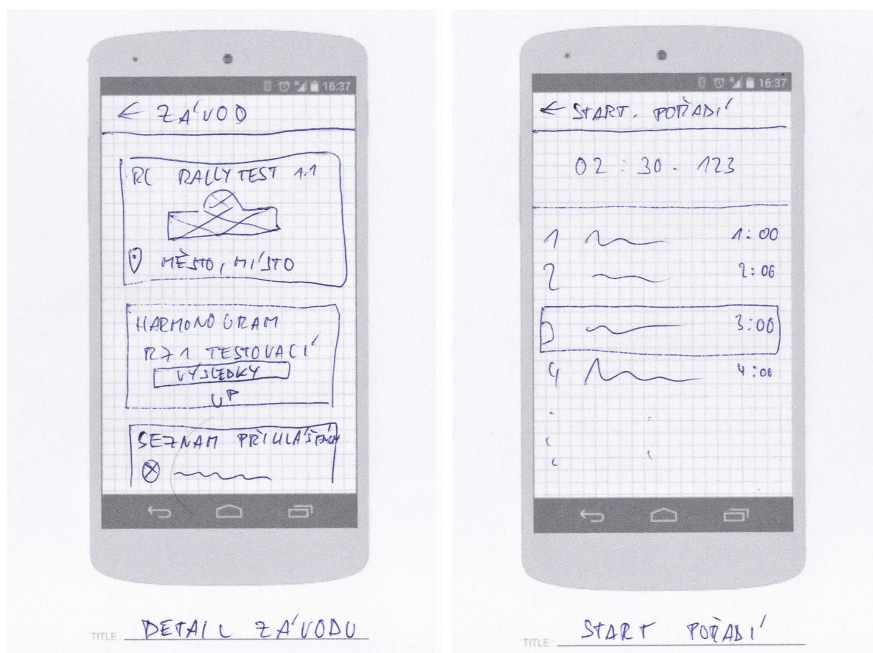 16:37
← ZÁVOD
RC RALLYTEST 1.1
MĚSTO, MÍSTO
HARMONOGRAM
RZ1 TESTOVACÍ
VÝSLEDKY
UP
SEZNAM PŘIHLÁŠENÝCH
TITLE: DETAIL ZÁVODU
16:37
← START. POŘADÍ
02 : 30 . 123
1 1:00
2 2:00
3 3:00
4 4:00
TITLE: START POŘADÍ